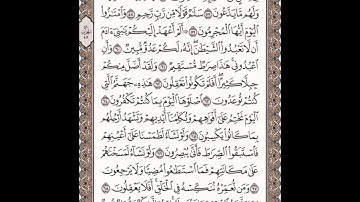 وَلَهُم مَّا يَدَّعُونَ ٥٧ سَلَٰمٌ قَوْلًا مِّن رَّبٍّ رَّحِيمٍ ٥٨ وَٱمْتَٰزُوا۟
ٱلْيَوْمَ أَيُّهَا ٱلْمُجْرِمُونَ ٥٩ ۞ أَلَمْ أَعْهَدْ إِلَيْكُمْ يَٰبَنِىٓ ءَادَمَ
أَن لَّا تَعْبُدُوا۟ ٱلشَّيْطَٰنَ إِنَّهُۥ لَكُمْ عَدُوٌّ مُّبِينٌ ٦٠ وَأَنِ
ٱعْبُدُونِى هَٰذَا صِرَٰطٌ مُّسْتَقِيمٌ ٦١ وَلَقَدْ أَضَلَّ مِنكُمْ
جِبِلًّا كَثِيرًا أَفَلَمْ تَكُونُوا۟ تَعْقِلُونَ ٦٢ هَٰذِهِۦ جَهَنَّمُ ٱلَّتِى
كُنتُمْ تُوعَدُونَ ٦٣ ٱصْلَوْهَا ٱلْيَوْمَ بِمَا كُنتُمْ تَكْفُرُونَ ٦٤
ٱلْيَوْمَ نَخْتِمُ عَلَىٰٓ أَفْوَٰهِهِمْ وَتُكَلِّمُنَآ أَيْدِيهِمْ وَتَشْهَدُ أَرْجُلُهُم
بِمَا كَانُوا۟ يَكْسِبُونَ ٦٥ وَلَوْ نَشَآءُ لَطَمَسْنَا عَلَىٰٓ أَعْيُنِهِمْ
فَٱسْتَبَقُوا۟ ٱلصِّرَٰطَ فَأَنَّىٰ يُبْصِرُونَ ٦٦ وَلَوْ نَشَآءُ لَمَسَخْنَٰهُمْ
عَلَىٰ مَكَانَتِهِمْ فَمَا ٱسْتَطَٰعُوا۟ مُضِيًّا وَلَا يَرْجِعُونَ ٦٧
وَمَن نُّعَمِّرْهُ نُنَكِّسْهُ فِى ٱلْخَلْقِ أَفَلَا يَعْقِلُونَ ٦٨